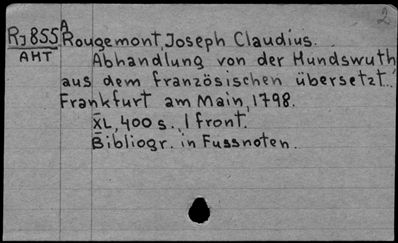 2
RJ855 A Rougemont, Joseph Claudius.
AHT
Abhandlung von der Hundswuth,
aus dem französischen übersetzt..
Frankfurt am Main, 1798.
XL, 400 s., 1 front.
Bibliogr. in Fussnoten.